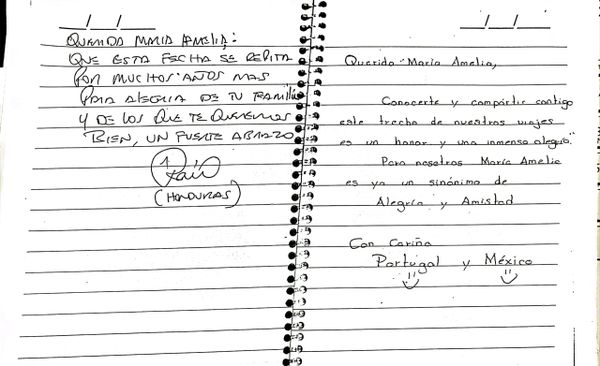 QUERIDA MARIA AMELIA:
QUE ESTA FECHA SE REPITA
POR MUCHOS AÑOS MAS
PARA ALEGRIA DE TU FAMILIA
Y DE LOS QUE TE QUEREMOS
BIEN, UN FUERTE ABRAZO
Raúl
(HONDURAS)
Querida María Amelia,
Conocerte y compartir contigo
este trecho de nuestros viajes
es un honor y una inmensa alegria.
Para nosotros María Amelia
es ya un sinónimo de
Alegría y Amistad
Con Cariño
Portugal y México